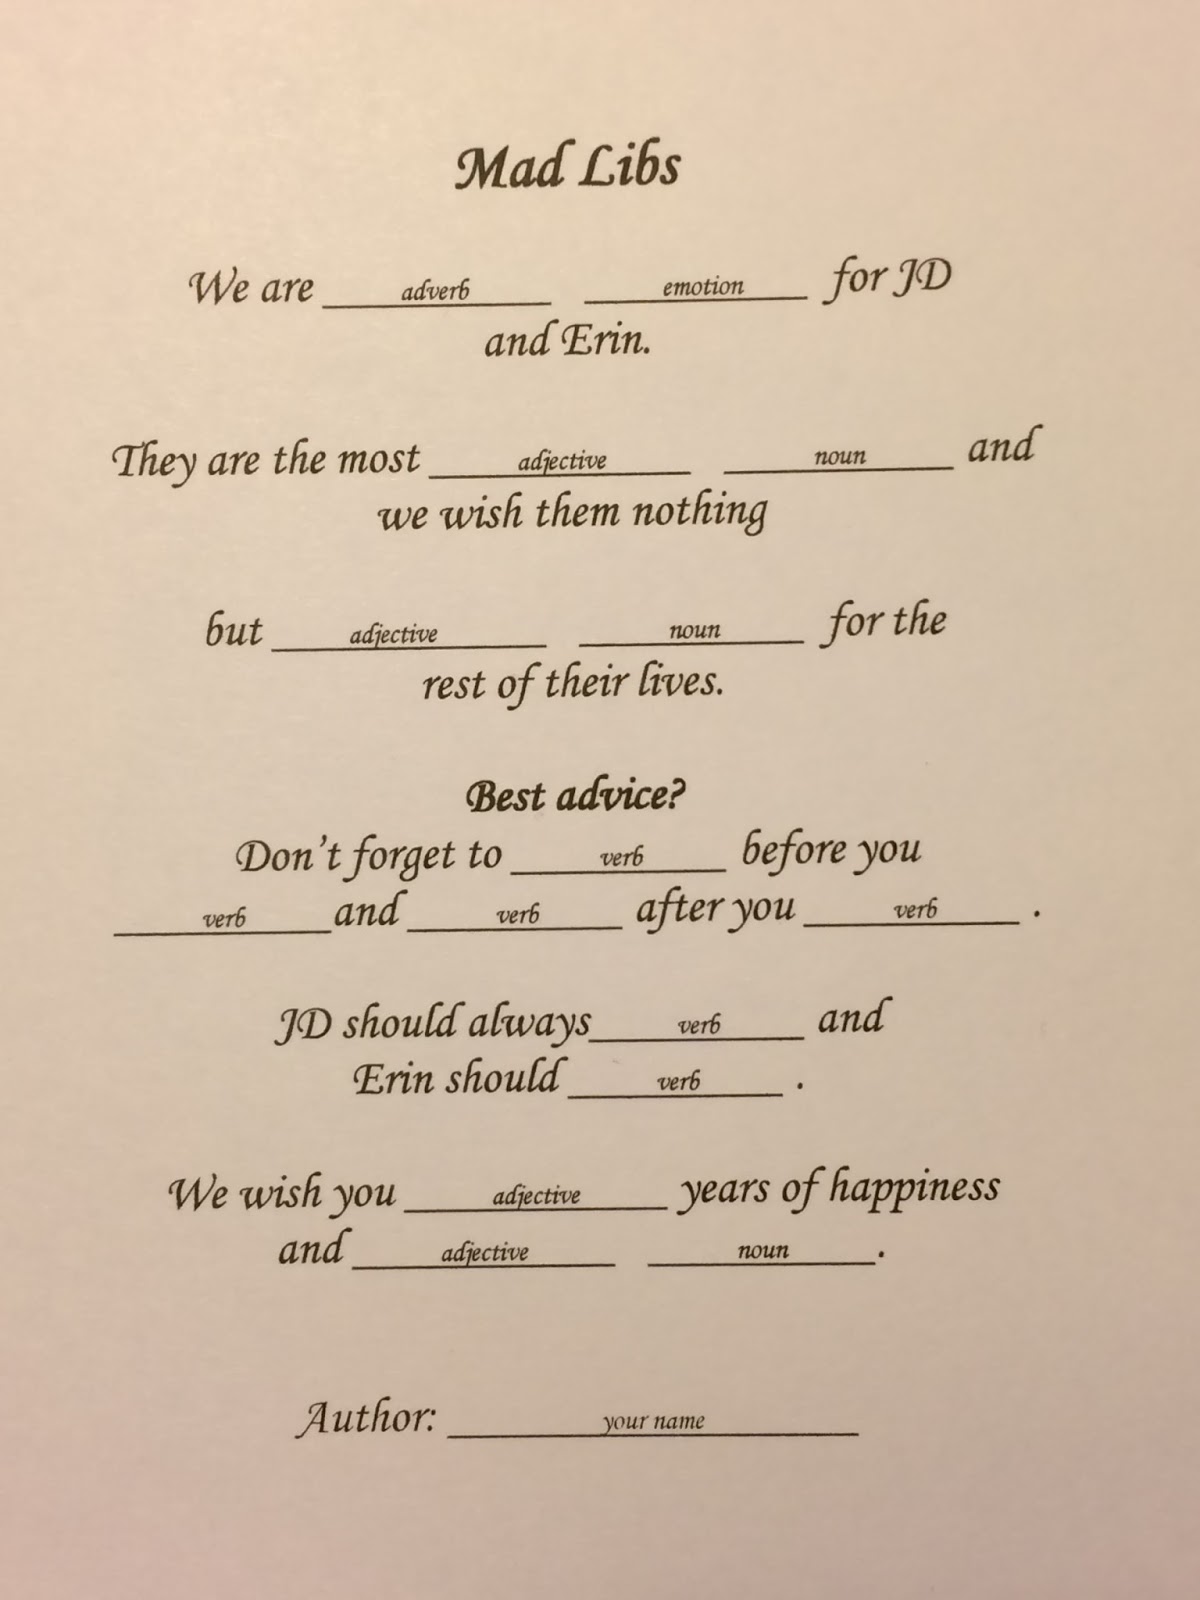 Mad Libs
We are ___adverb___ ___emotion___ for JD
and Erin.
They are the most ___adjective___ ___noun___ and
we wish them nothing
but ___adjective___ ___noun___ for the
rest of their lives.
Best advice?
Don't forget to ___verb___ before you
___verb___ and ___verb___ after you ___verb___ .
JD should always ___verb___ and
Erin should ___verb___ .
We wish you ___adjective___ years of happiness
and ___adjective___ ___noun___.
Author: ___your name___